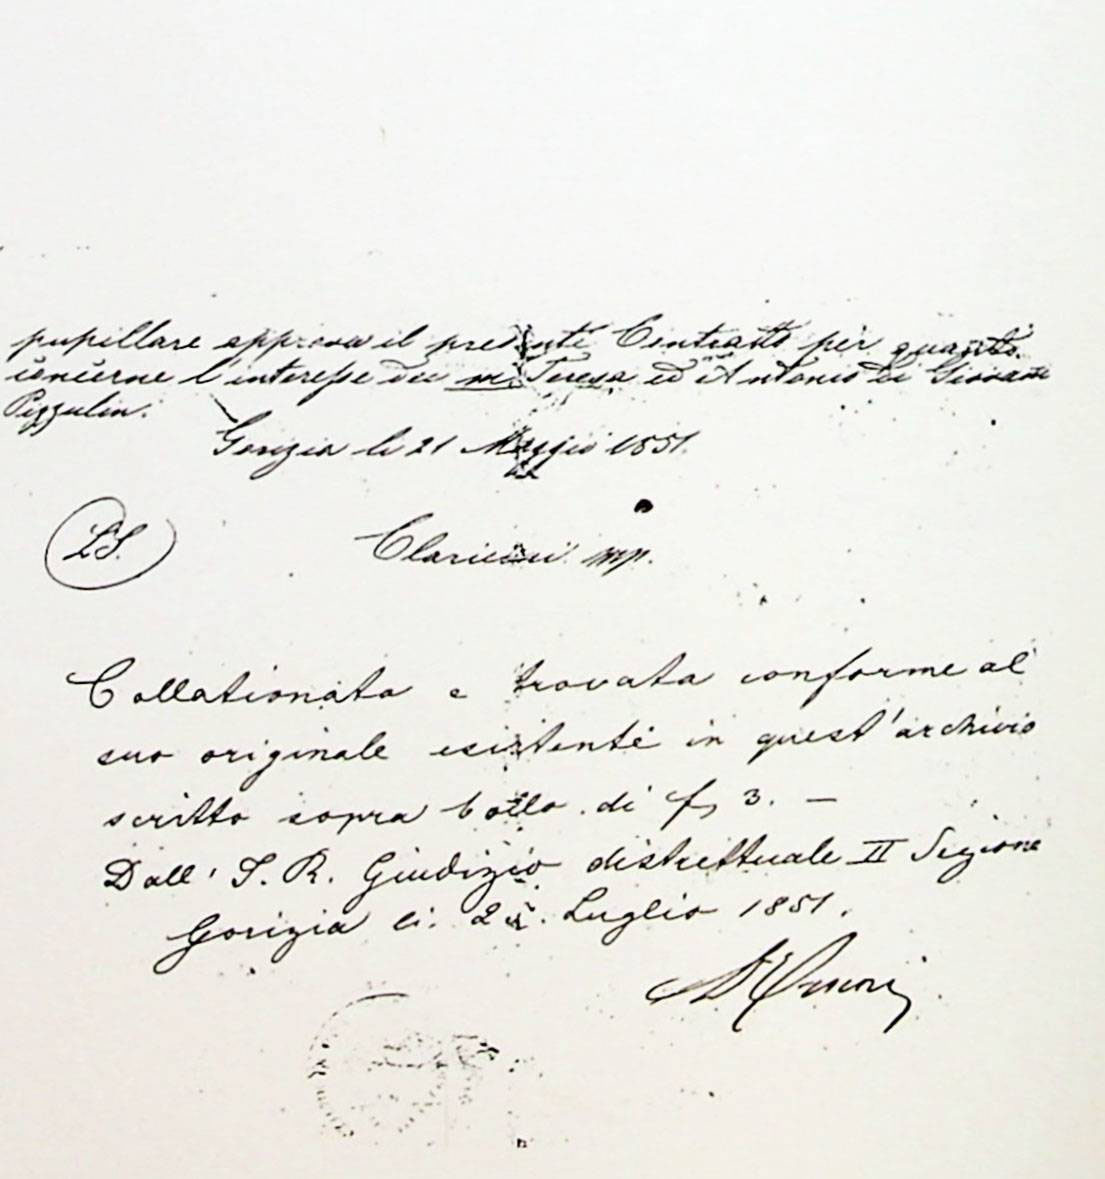 pupillare approva il presente Contratto per quanto
concerne l'interesse dei m. Teresa ed Antonio di Giovanni
Pizzulin.
Gorizia li 21 Maggio 1851.
LS.
mp.
Collationata e trovata conforme al
suo originale esistente in quest'archivio
scritto sopra bollo di f 3. —
Dall' I. R. Giudizio distrettuale II Sezione
Gorizia li. Luglio 1851.